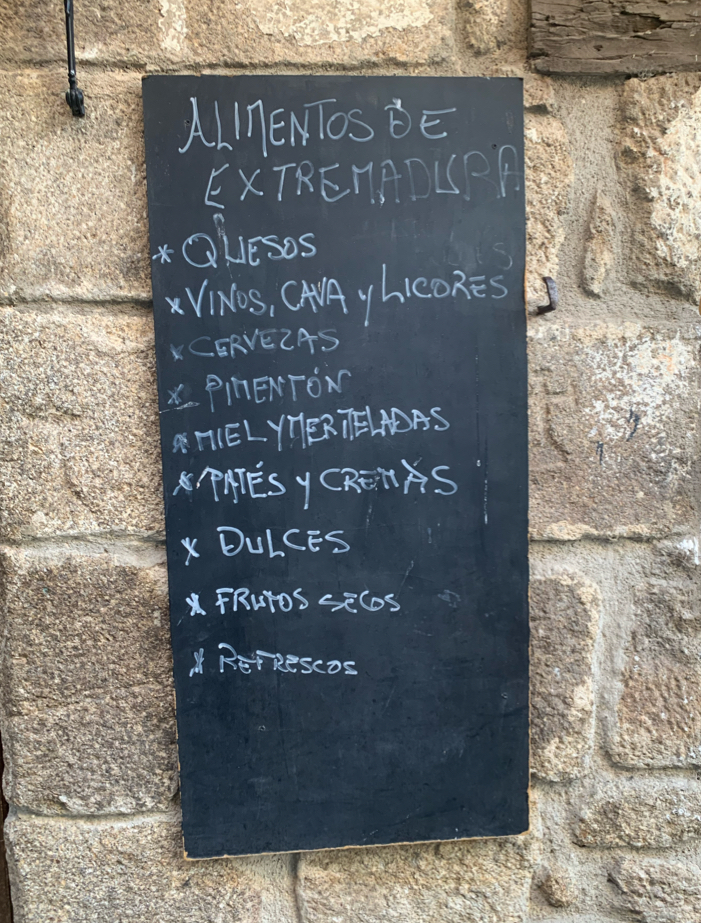 ALIMENTOS DE
EXTREMADURA
* QUESOS
* VINOS, CAVA y LICORES
* CERVEZAS
* PIMENTÓN
* MIEL Y MERMELADAS
* PATÉS y CREMAS
* DULCES
* FRUTOS SECOS
* REFRESCOS